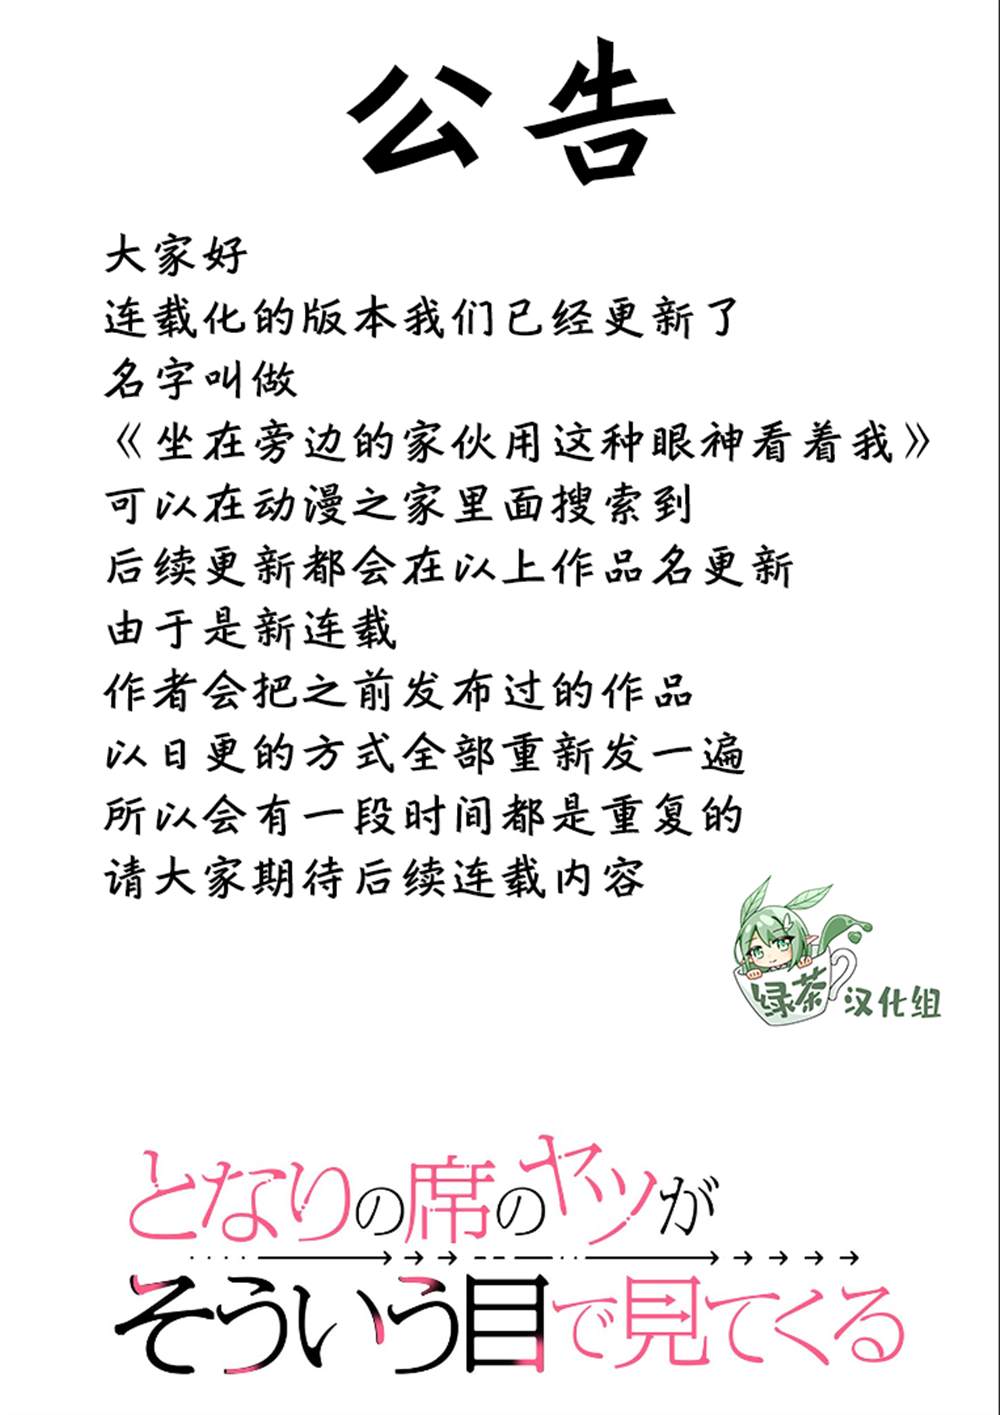 公告
大家好
连载化的版本我们已经更新了
名字叫做
《坐在旁边的家伙用这种眼神看着我》
可以在动漫之家里面搜索到
后续更新都会在以上作品名更新
由于是新连载
作者会把之前发布过的作品
以日更的方式全部重新发一遍
所以会有一段时间都是重复的
请大家期待后续连载内容
绿茶汉化组
となりの席のヤツが
そういう目で見てくる